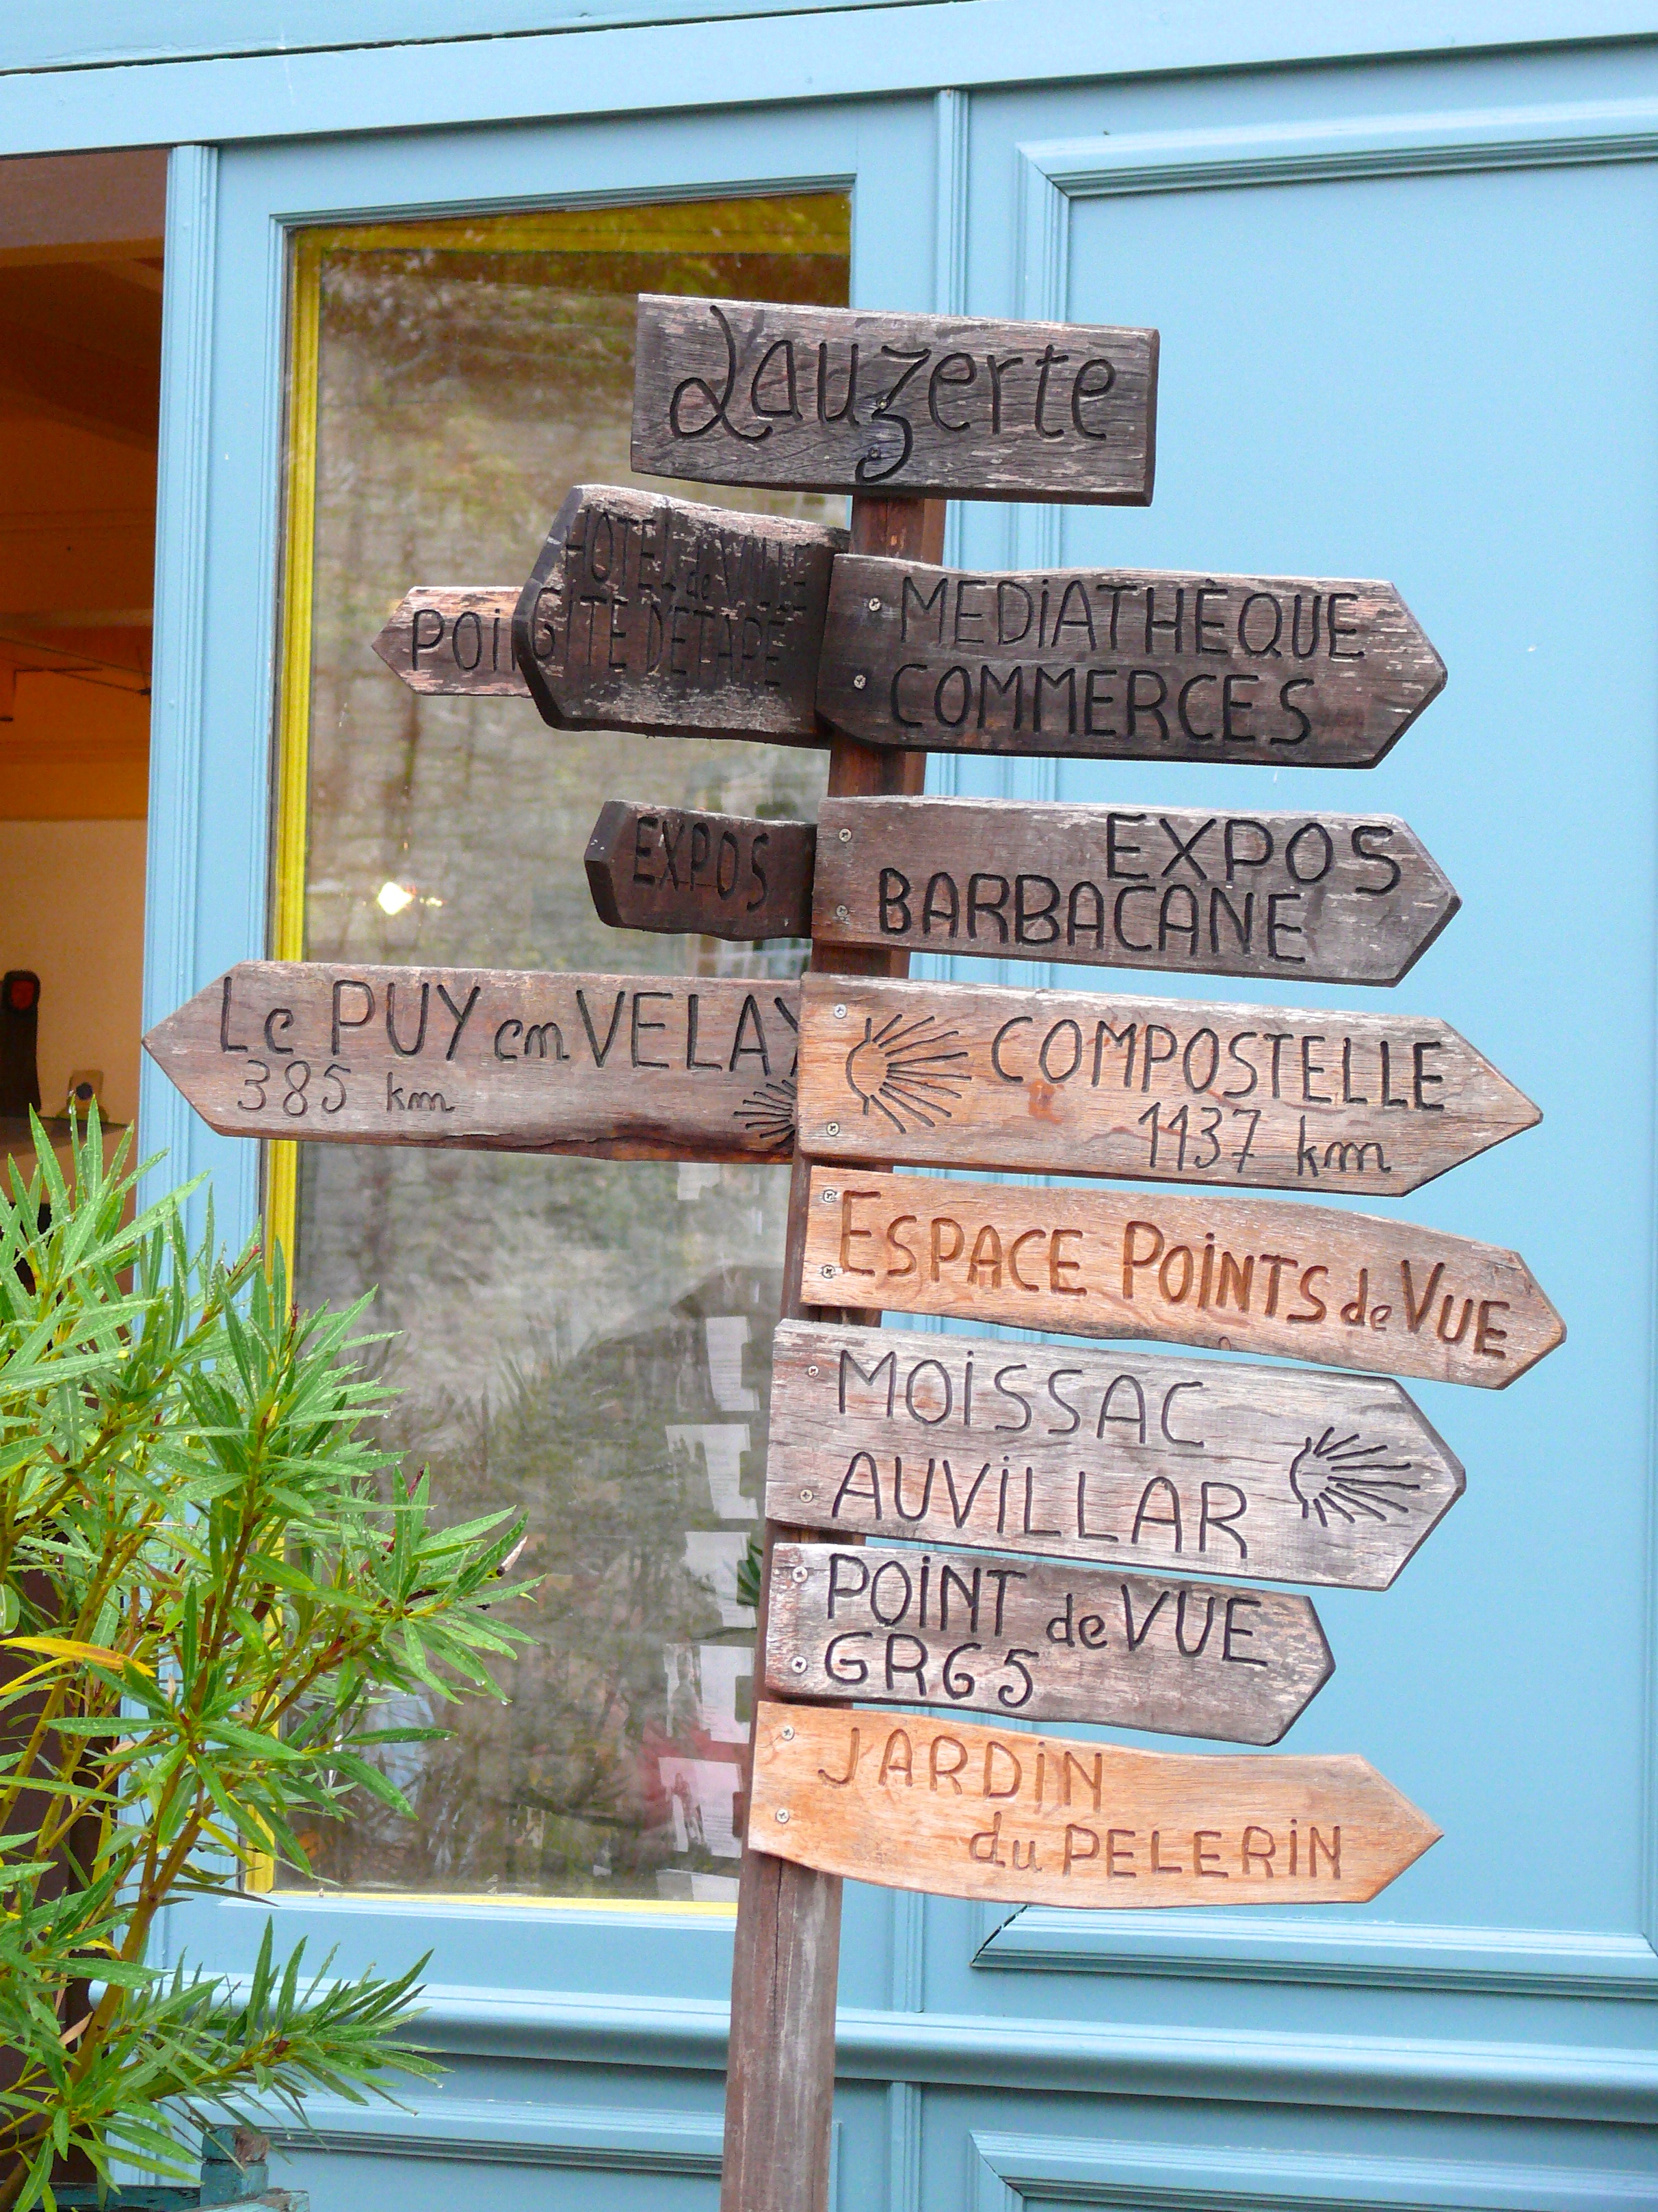 Lauzerte
HÔTEL de VILLE
GITE D'ETAPE
MEDiATHÈQUE
COMMERCES
EXPOS
EXPOS
BARBACANE
Le PUY en VELAY
385 km
COMPOSTELLE
1137 km
ESPACE POiNTS de VUE
MOiSSAC
AUViLLAR
POiNT de VUE
GR65
JARDiN
du PELERiN